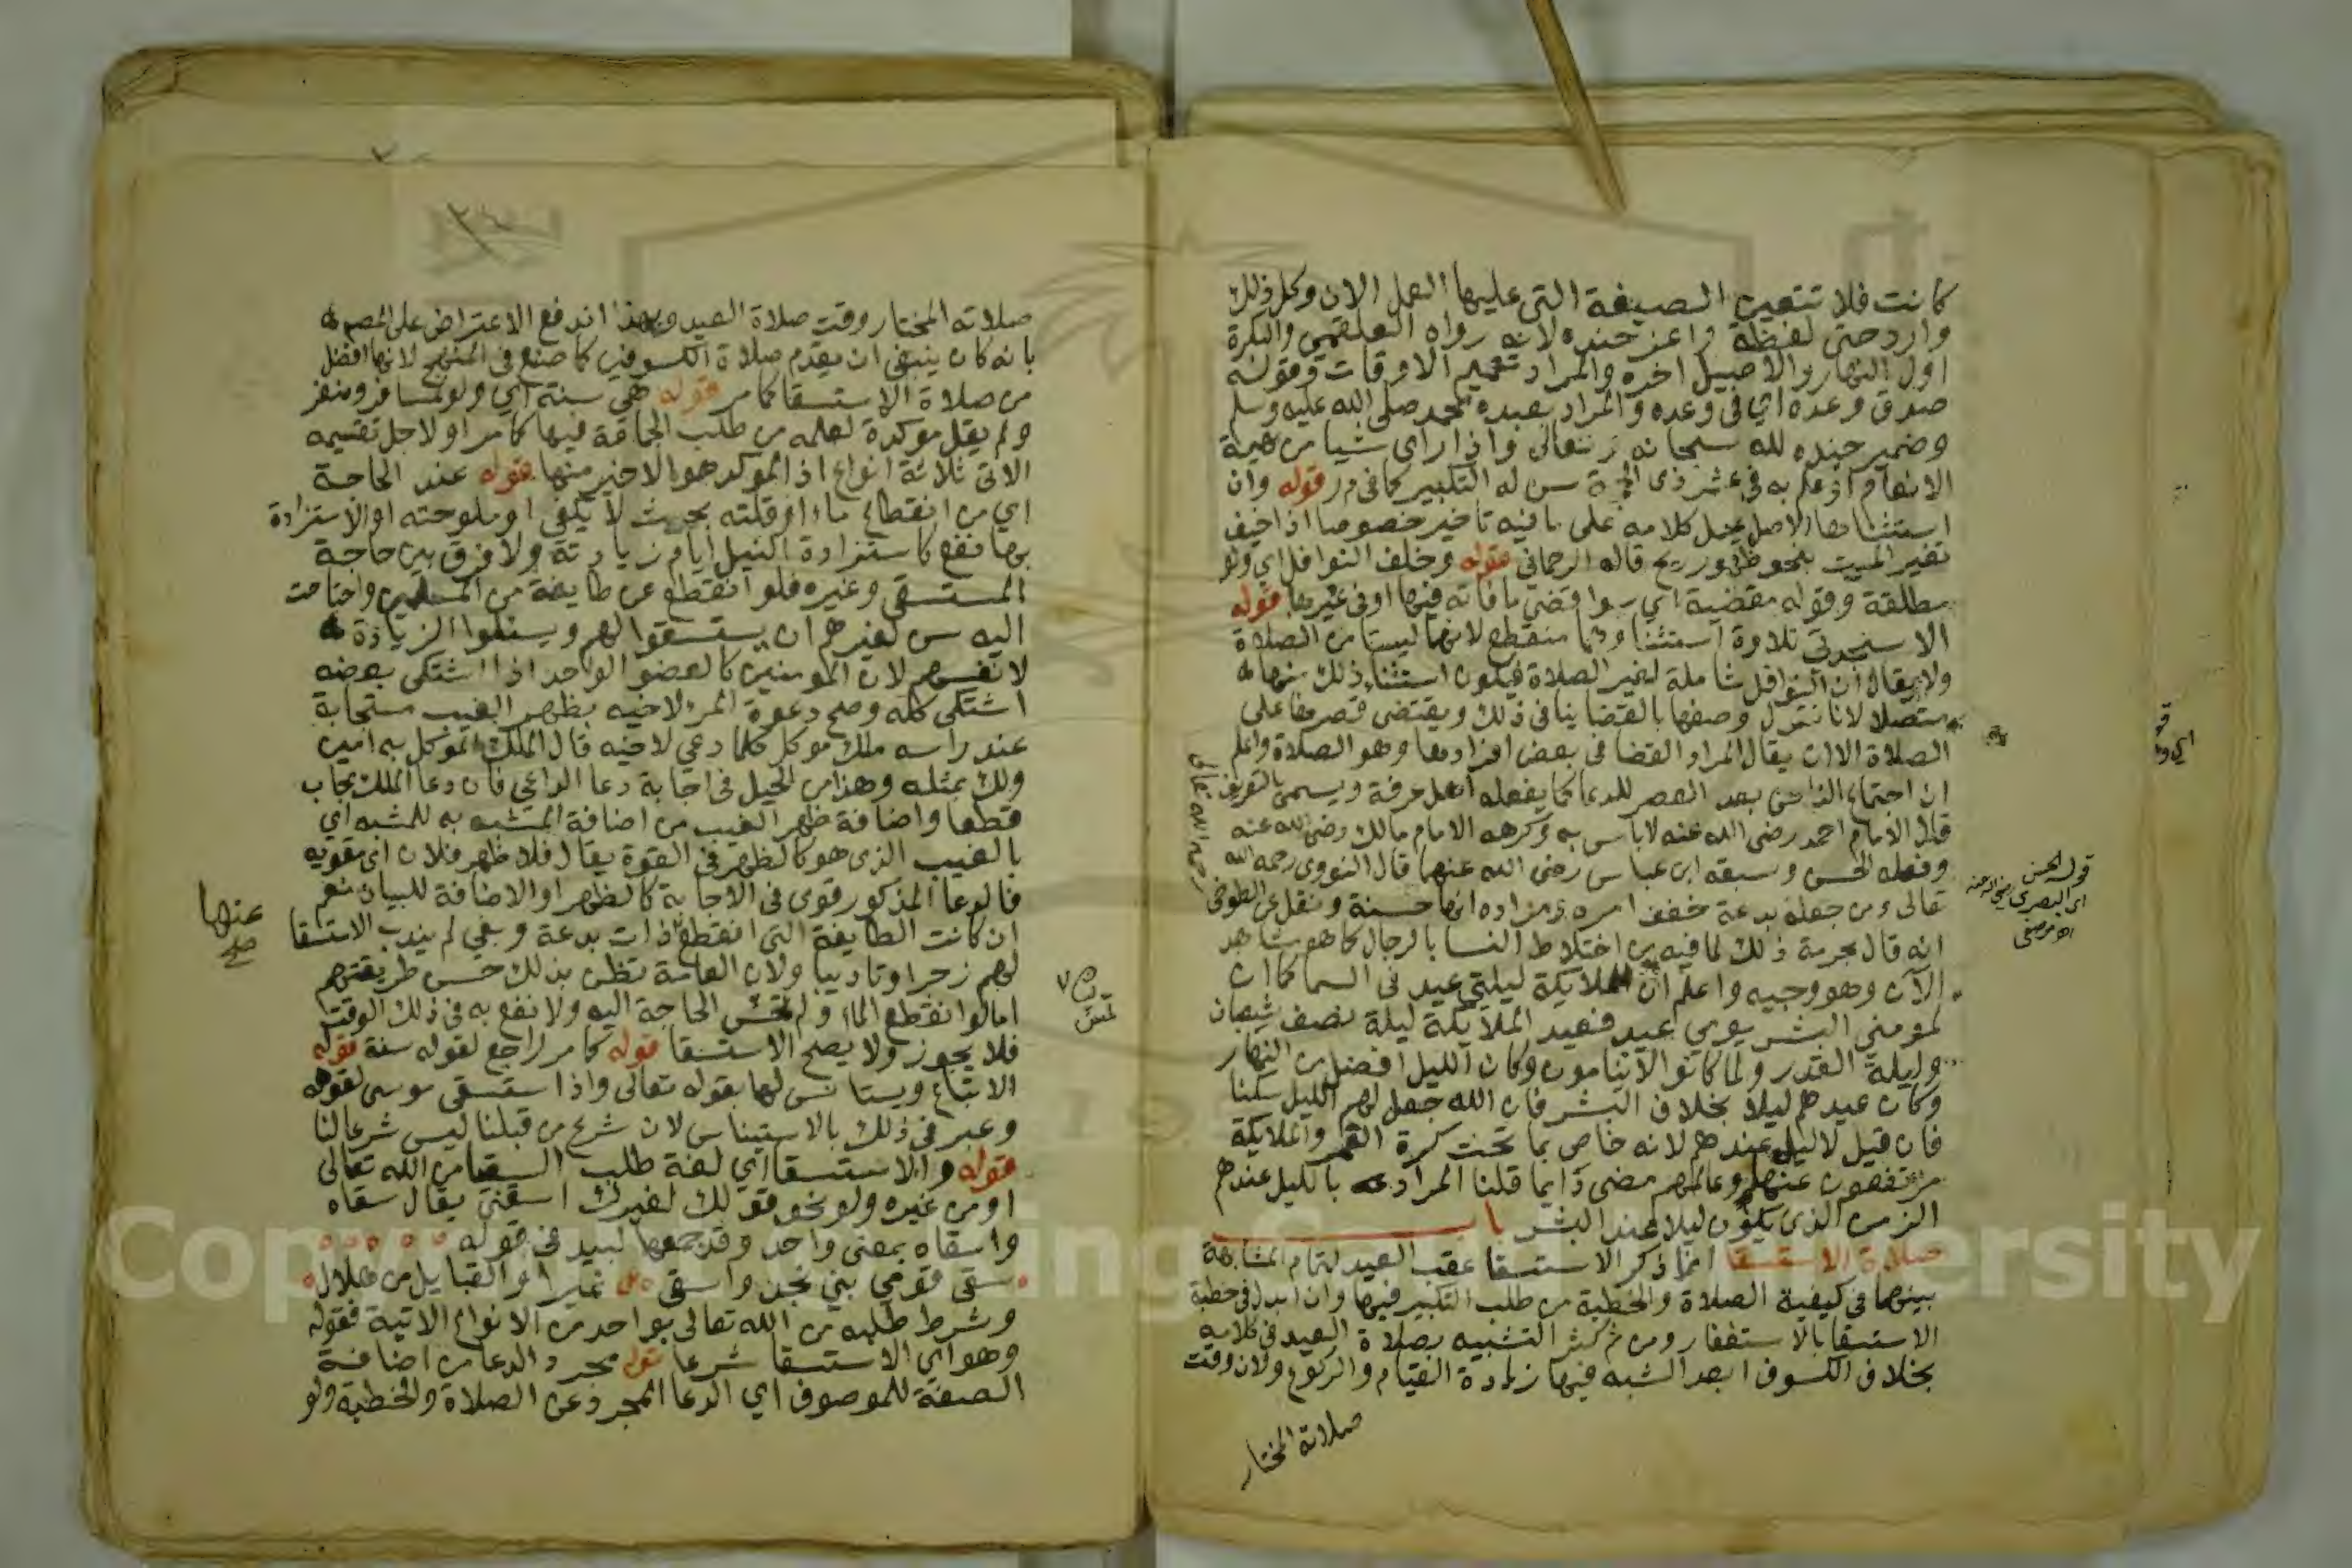 كانت فلا تتعين الصيغة التي عليها العمل الان وكل ذلك
وارد حتى لفظة واعز جنده لانه رواه العلقمي والبكرة
اول النهار والاصيل اخره والمراد تعميم الاوقات وقوله
صدق وعده اي في وعده والمراد بعبده محمد صلى الله عليه وسلم
وضمير جنده لله سبحانه وتعالى واذا راى شيا من بهيمة
الانعام او علم به في عشر ذي الحجة سن له التكبير كما في م ر قوله وان
استثناها الاصل يحمل كلامه على ما فيه تاخير خصوصا اذا خيف
تغير الميت بنحو ظهور ريح قاله الرحماني قوله وخلف النوافل اي ولو
مطلقة وقوله مقضية اي سوا قضي ما فاته فيها او في غيرها قوله
الا سجدتي تلاوة استثناوهما منقطع لانهما ليستا من الصلاة
ولا يقال ان النوافل شاملة لغير الصلاة فيكون استثناء ذلك منها
متصلا لانا نقول وصفها بالقضا ينافي ذلك ويقتضي قصرها على
الصلاة الا ان يقال المراد القضا في بعض افرادها وهو الصلاة واعلم
ان اجتماع الناس بعد العصر للدعا كما يفعله اهل عرفة ويسمى بالتعريف
قال الامام احمد رضي الله عنه لاباس به وكرهه الامام مالك رضي الله عنه
وفعله الحسن وسبقه ابن عباس رضي الله عنهما قال النووي رحمه الله
تعالى ومن جعله بدعة خفف امره ومراده انها حسنة ونقل عن الطوخي
رحمه الله تعالى
قوله الحسن
اي البصري رضي الله عنه
اهـ مرصفى
انه قال بحرمة ذلك لما فيه من اختلاط النسا بالرجال كما هو مشاهد
الآن وهو وجيه واعلم ان للملايكة ليلتي عيد في السما كما ان
لمومني البشر يومي عيد فعيد الملايكة ليلة نصف شعبان
وليلة القدر ولما كانوا لا ينامون وكان الليل افضل من النهار
وكان عيدهم ليلا بخلاف البشر فان الله جعل لهم الليل سكنا
فان قيل لا ليل عندهم لانه خاص بما تحت كرة القمر والملايكة
مرتفعون عنها وعالمهم مضي دايما قلنا المراد بالليل عندهم
الزمن الذي يكون ليلا عند البشر باب
صلاة الاستسقا انما ذكر الاستسقا عقب العيد لتمام المشابهة
بينهما في كيفية الصلاة والخطبة من طلب التكبير فيها وان ابدل في خطبة
الاستسقا بالاستغفار ومن ثم كثر التشبيه بصلاة العيد في كلامه
بخلاف الكسوف ابعد الشبه فيها زيادة القيام والركوع ولان وقت
صلاته المختار
صلاته المختار وقت صلاة العيد وبهذا اندفع الاعتراض على المص
بانه كان ينبغي ان يقدم صلاة الكسوفين كما صنع في المنهج لانها افضل
من صلاة الاستسقا كما مر قوله هي سنة اي ولو لمسافر ومنفر
ولم يقل موكدة لعلمه من طلب الجماعة فيها كما مر او لاجل تقسيمه
الاتي ثلاثة انواع اذ الموكد هو الاخير منها قوله عند الحاجة
اي من انقطاع ماء او قلته بحيث لا يكفي او ملوحته او الاستزادة
بها نفع كاستزادة النيل ايام زيادته ولا فرق بين حاجة
المستسقي وغيره فلو انقطع عن طايفة من المسلمين واحتاجت
اليه سن لغيرهم ان يستسقوا لهم ويسئلوا الزيادة
لانفسهم لان المومنين كالعضو الواحد اذا اشتكى بعضه
اشتكى كله وصح دعوة المرء لاخيه بظهر الغيب مستجابة
عند راسه ملك موكل كلما دعي لاخيه قال الملك الموكل به امين
ولك بمثله وهذا من الحيل في اجابة دعا الداعي فان دعا الملك يجاب
قطعا واضافة ظهر الغيب من اضافة المشبه به للمشبه اي
بالغيب الذي هو كالظهر في القوة يقال فلان ظهر فلان اي مقويه
فالدعا المذكور قوي في الاجابة كالظهر او الاضافة للبيان نعم
ان كانت الطايفة التي انقطع ذات بدعة وبغي لم يندب الاستسقا
عنها
صح
لهم زجرا وتاديبا ولان العامة تظن بذلك حسن طريقتهم
اما لو انقطع الماء ولم تمس الحاجة اليه ولا نفع به في ذلك الوقت
تمس
فلا يجوز ولا يصح الاستسقا قوله كما مر راجع لقوله سنة قوله
الاتباع ويستانس لها بقوله تعالى واذا استسقى موسى لقومه
وعبر في ذلك بالاستيناس لان شرع من قبلنا ليس شرعا لنا
قوله والاستسقا اي لغة طلب السقيا من الله تعالى
او من غيره ولو نحو قولك لغيرك اسقني يقال سقاه
واسقاه بمعنى واحد وقد جمعهما لبيد في قوله
سقى قومي بني نجد واسقى نميرا والقبايل من هلال
وشرط طلبه من الله تعالى بواحد من الانواع الاتية فقوله
وهو اي الاستسقا شرعا قوله مجرد الدعا من اضافة
الصفة للموصوف اي الدعا المجرد عن الصلاة والخطبة ولو